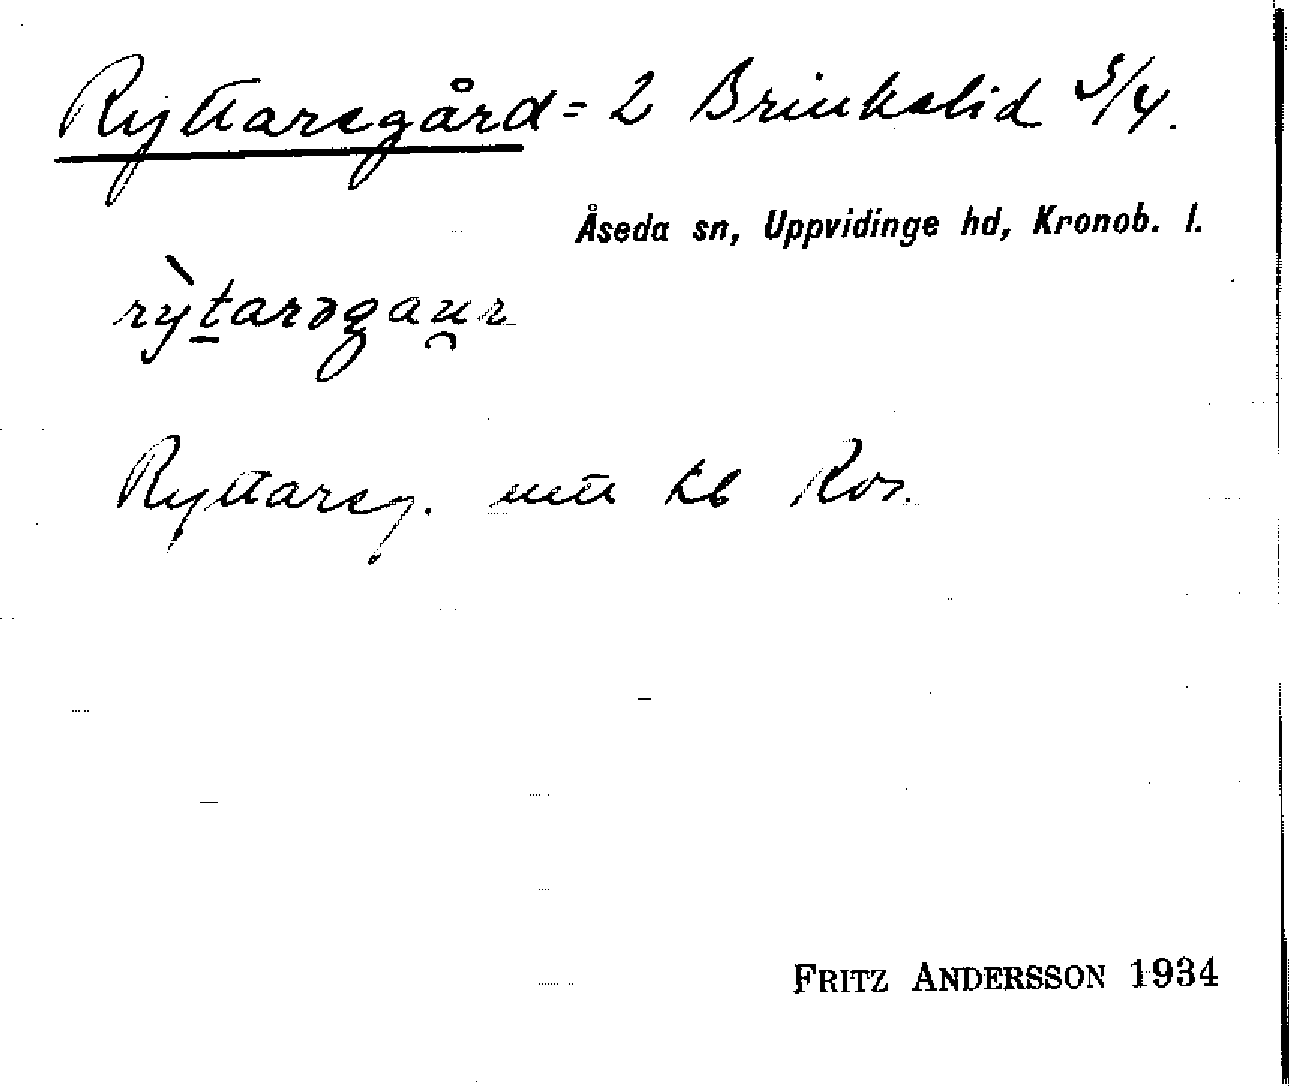 Ryttaregård = 2 Brinkelid 3/4.
Åseda sn, Uppvidinge hd, Kronob. l.
rỳtarəgau̯r
Ryttareg. utt kb Ros.
FRITZ ANDERSSON 1934